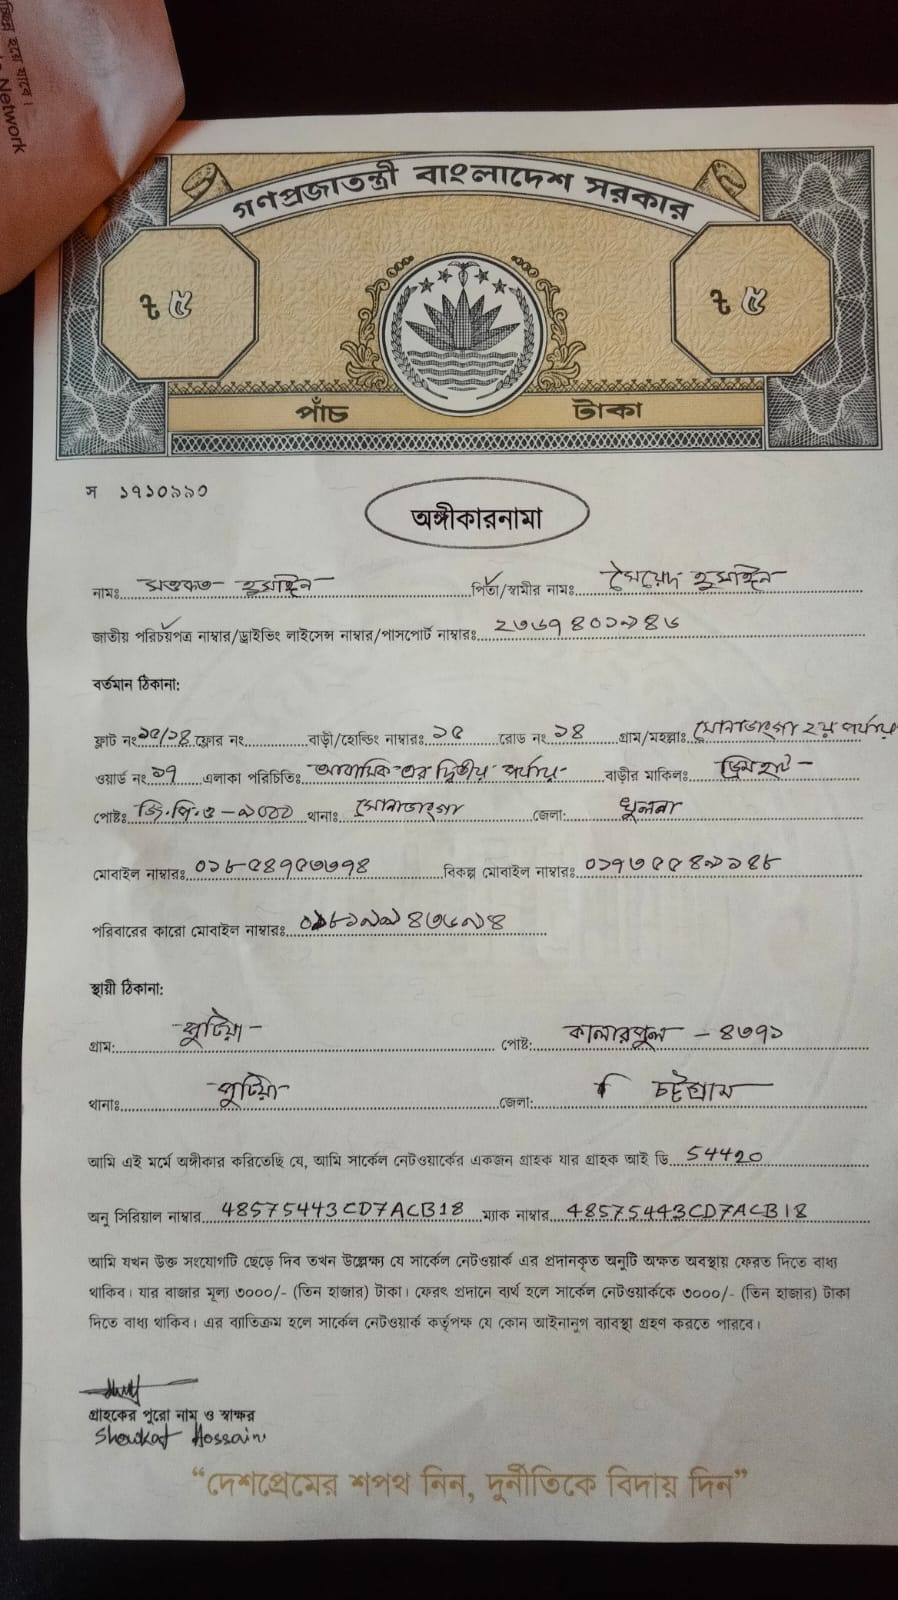 চ্ছিন্ন হয়ে যাবে।
Network
গণপ্রজাতন্ত্রী বাংলাদেশ সরকার
৳ ৫ ৳ ৫
পাঁচ টাকা
স ১৭১০৯৯০
অঙ্গীকারনামা
নামঃ সওকত হুসাঈন পিতা/স্বামীর নামঃ সৈয়েদ হুসাঈন
জাতীয় পরিচয়পত্র নাম্বার/ড্রাইভিং লাইসেন্স নাম্বার/পাসপোর্ট নাম্বারঃ ২৩৬৭৪০১৯৪৬
বর্তমান ঠিকানা:
ফ্লাট নং ১৫/১৪ ফ্লোর নং বাড়ী/হোল্ডিং নাম্বারঃ ১৫ রোড নং ১৪ গ্রাম/মহল্লাঃ সোনাডাংগা ২য় পর্যায়
ওয়ার্ড নং ১৭ এলাকা পরিচিতিঃ আবাসিক এর দ্বিতীয় পর্যায় বাড়ীর মালিকঃ
পোষ্টঃ জি.পি.ও - ৯০০০ থানাঃ সোনাডাংগা জেলা: খুলনা
মোবাইল নাম্বারঃ ০১৮৫৪৭৫৩৭৭৪ বিকল্প মোবাইল নাম্বারঃ
পরিবারের কারো মোবাইল নাম্বারঃ
স্থায়ী ঠিকানা:
গ্রাম: পুটিয়া পোষ্ট: কালারপুল - ৪৩৭১
থানাঃ পুটিয়া জেলা: চট্টগ্রাম
আমি এই মর্মে অঙ্গীকার করিতেছি যে, আমি সার্কেল নেটওয়ার্কের একজন গ্রাহক যার গ্রাহক আই ডি 54420
অনু সিরিয়াল নাম্বার 48575443CD7ACB18 ম্যাক নাম্বার 48575443CD7ACB18
আমি যখন উক্ত সংযোগটি ছেড়ে দিব তখন উল্লেক্ষ্য যে সার্কেল নেটওয়ার্ক এর প্রদানকৃত অনুটি অক্ষত অবস্থায় ফেরত দিতে বাধ্য
থাকিব। যার বাজার মূল্য ৩০০০/- (তিন হাজার) টাকা। ফেরৎ প্রদানে ব্যর্থ হলে সার্কেল নেটওয়ার্ককে ৩০০০/- (তিন হাজার) টাকা
দিতে বাধ্য থাকিব। এর ব্যতিক্রম হলে সার্কেল নেটওয়ার্ক কর্তৃপক্ষ যে কোন আইনানুগ ব্যাবস্থা গ্রহণ করতে পারবে।
গ্রাহকের পুরো নাম ও স্বাক্ষর
Showkat Hossain
“দেশপ্রেমের শপথ নিন, দুর্নীতিকে বিদায় দিন”